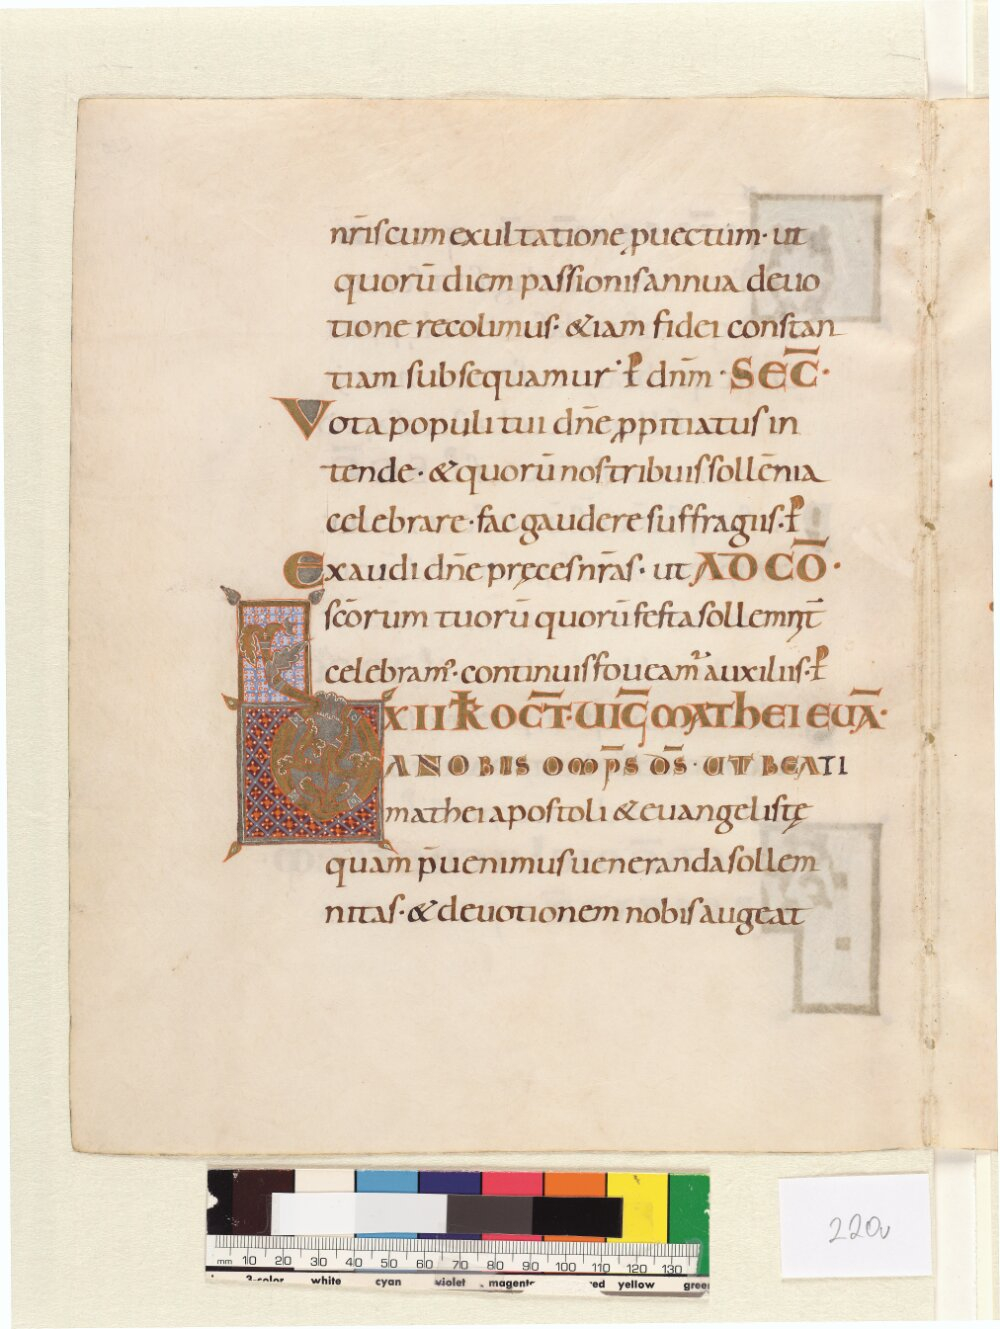 nr̄is cum exultatione ꝓuectum· ut
quorū diem passionis annua deuo
tione recolimus· & iam fidei constan
tiam subsequamur· ꝑ dn̄m· SEC̄·
Vota populi tui dn̄e ꝓpitiatus in
tende· & quorū nos tribuis sollēnia
celebrare· fac gaudere suffragiis· ꝑ
Exaudi dn̄e pręces nr̄as· ut AD CŌ·
scōrum tuorū quorū festa sollemnit̄
celebram᾽· continuis foueam᾽ auxiliis· ꝑ
XII K̄ OCT̄· UIG̅ MATHEI EUĀ·
DA NOBIS OMP̄S DS̄· UT BEATI
mathei apostoli & euangelistę
quam p̄uenimus ueneranda sollem
nitas· & deuotionem nobis augeat
220v
mm 10 20 30 40 50 60 70 80 90 100 110 120 130
3-color white cyan violet magenta red yellow green